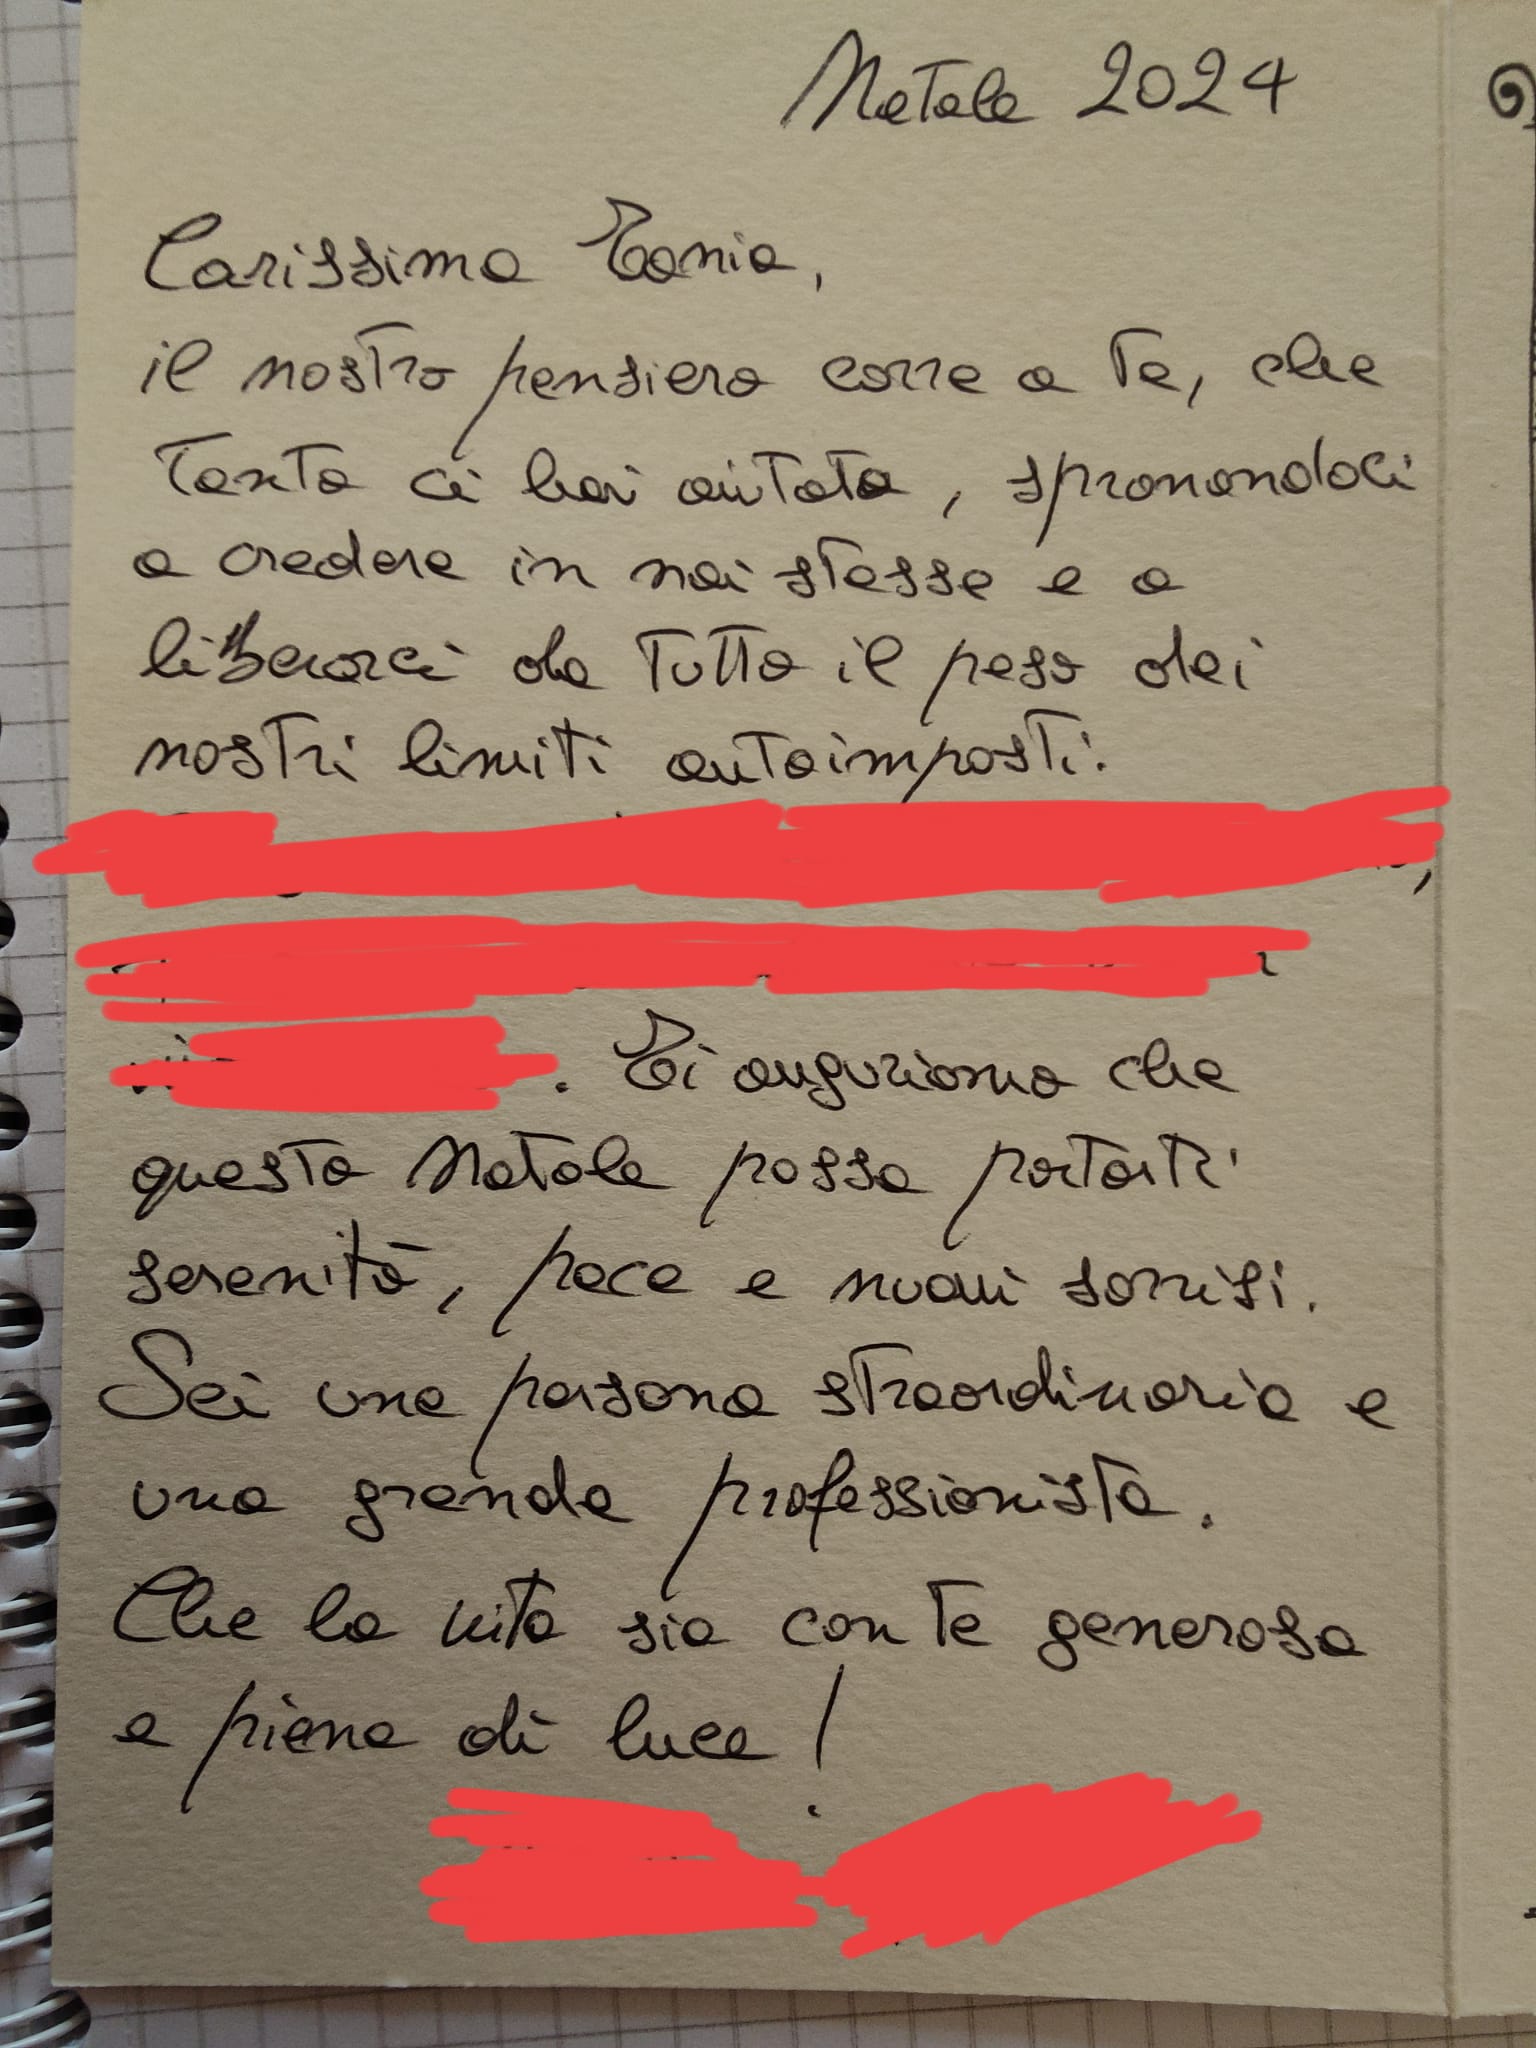 Natale 2024
Carissima Tania,
il nostro pensiero corre a te, che
tanto ci hai aiutato, spronandoci
a credere in noi stesse e a
liberarci da tutto il peso dei
nostri limiti autoimposti.
. Ti auguriamo che
questo Natale possa portarti
serenità, pace e nuovi sorrisi.
Sei una persona straordinaria e
una grande professionista.
Che la vita sia con te generosa
e piena di luce!